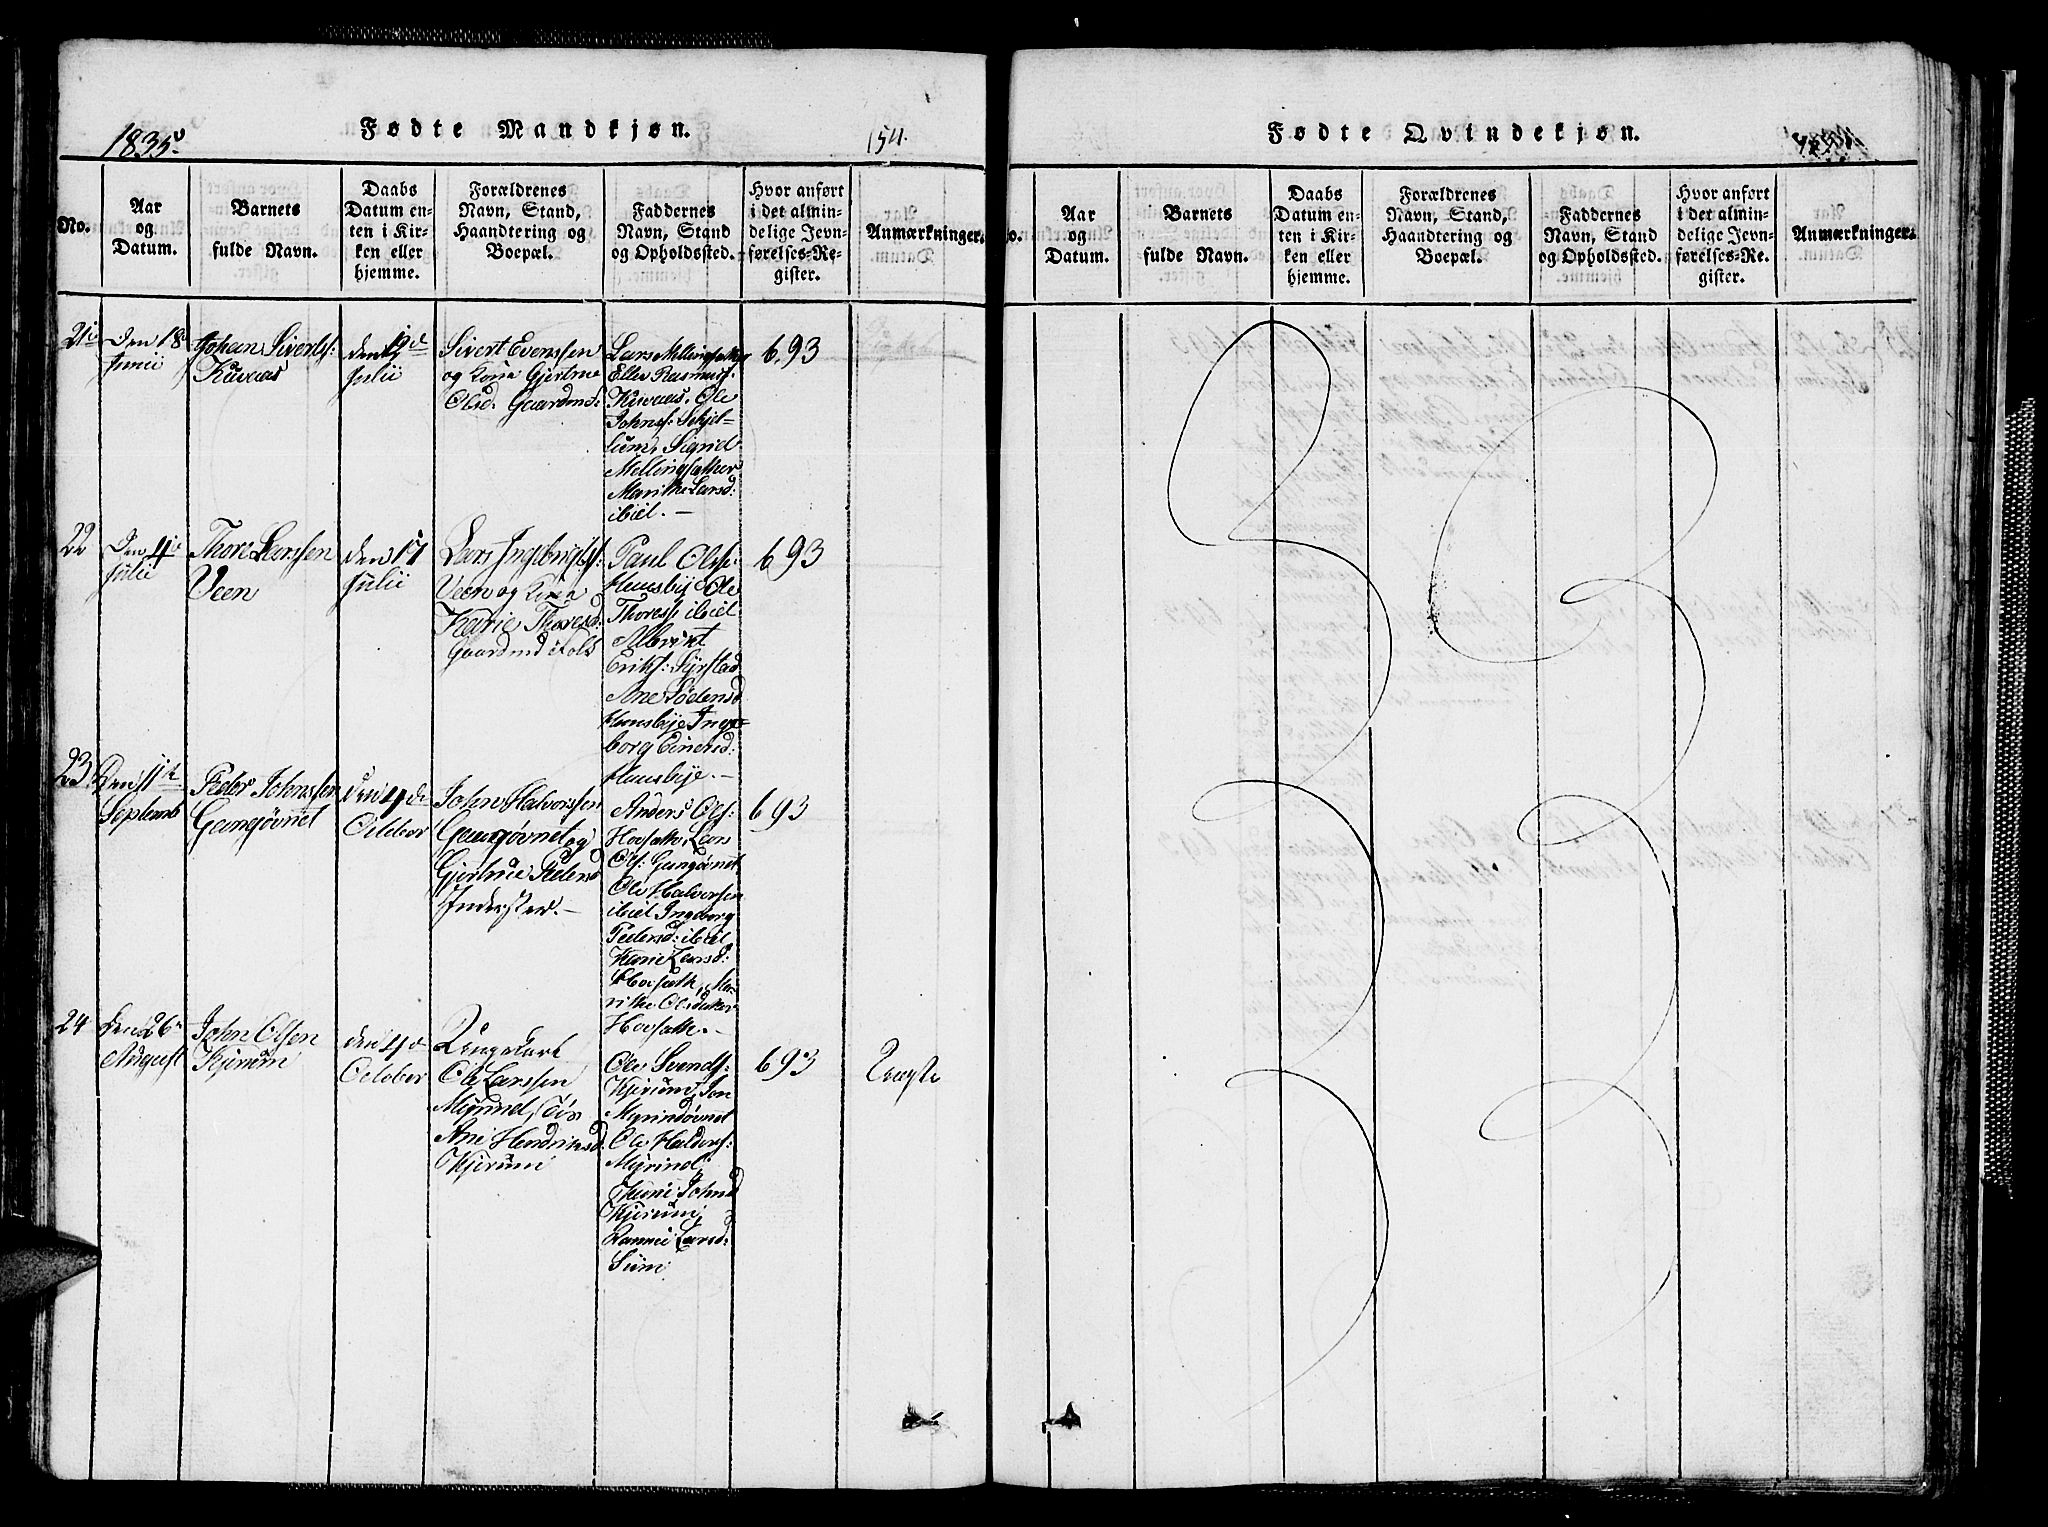 1835.
Fødte Mandkjøn.
154.
No.
Aar
og
Datum.
Barnets
fulde Navn.
Daabs
Datum en-
ten i Kir-
ken eller
hjemme.
Forældrenes
Navn, Stand,
Haandtering og
Boepæl.
Faddernes
Navn, Stand
og Opholdssted.
Hvor anført
i det almin-
delige Jevn-
førelses-Re-
gister.
Anmærkninger.
21
Den 18
Junii
Johan Siverts:
den 12
Julii
Sivert Evenssen
og Kone Gjertrue
Olsd: Gaardmd:
Lars Mellingsæther
Ellen Rasmusd:
Ole
Johnss: Schjel-
lum, Sigrid
Mellingsæther
Marithe Larsd:
ibid. —
693
22
Den 4
Julii
Thore Larssen
Veen
den 17
Julii
Lars Ingebrigts:
Veen og Kone
Karie Thoresd:
Gaardmd Folk
Paul Olss:
Huusbye Ole
Thoress ibid
Albrikt
Eriks: Syrstad
Ane
Huusbye Inge-
borg Einersd:
Huusbye. —
693
23
Den 11te
Septemb
Peder Johnssen
Gangøvriet
den 4de
October
John Halvorssen
og
Gjertrue Pedersd
Inderster. —
Anders Ols:
Hovsæth, Lars
Ols:
Ole Halvorsen
ibid Ingeborg
Pedersd: ibid
Karie Larsd:
Hovsæth, Ma-
rithe Olsdatter
Hovsæth. —
693
24
den 26
August
John Olsen
Kjerum
den 4d
October
Ungekarl
Ole Larssen
Ane Hendriksd:
Kjerum
Ole Svends:
Kjerum, Jon
Ole Haldors:
Johnsd
Kjerum,
Larsd:
693
Uægte
Fødte Qvindekjøn.
o.
Aar
og
Datum.
Barnets
fulde Navn.
Daabs
Datum en-
ten i Kir-
ken eller
hjemme.
Forældrenes
Navn, Stand,
Haandtering og
Boepæl.
Faddernes
Navn, Stand
og Opholdssted.
Hvor anført
i det almin-
delige Jevn-
førelses-Re-
gister.
Anmærkninger.